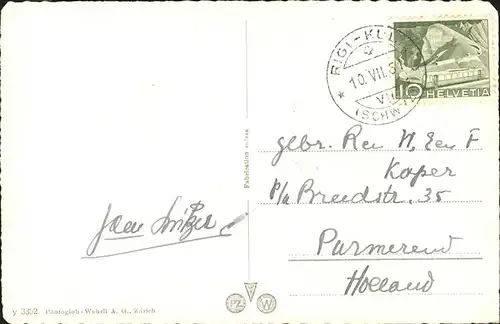 RIGI-KUL
10.VII.5
VII
(SCHW
10 HELVETIA
Fabrication suisse
gebr. Ren W, Een F
Koper
p/a Breedstr. 35
Purmerend
Holland
y 3352 Photoglob-Wehrli A. G., Zürich
PZ W